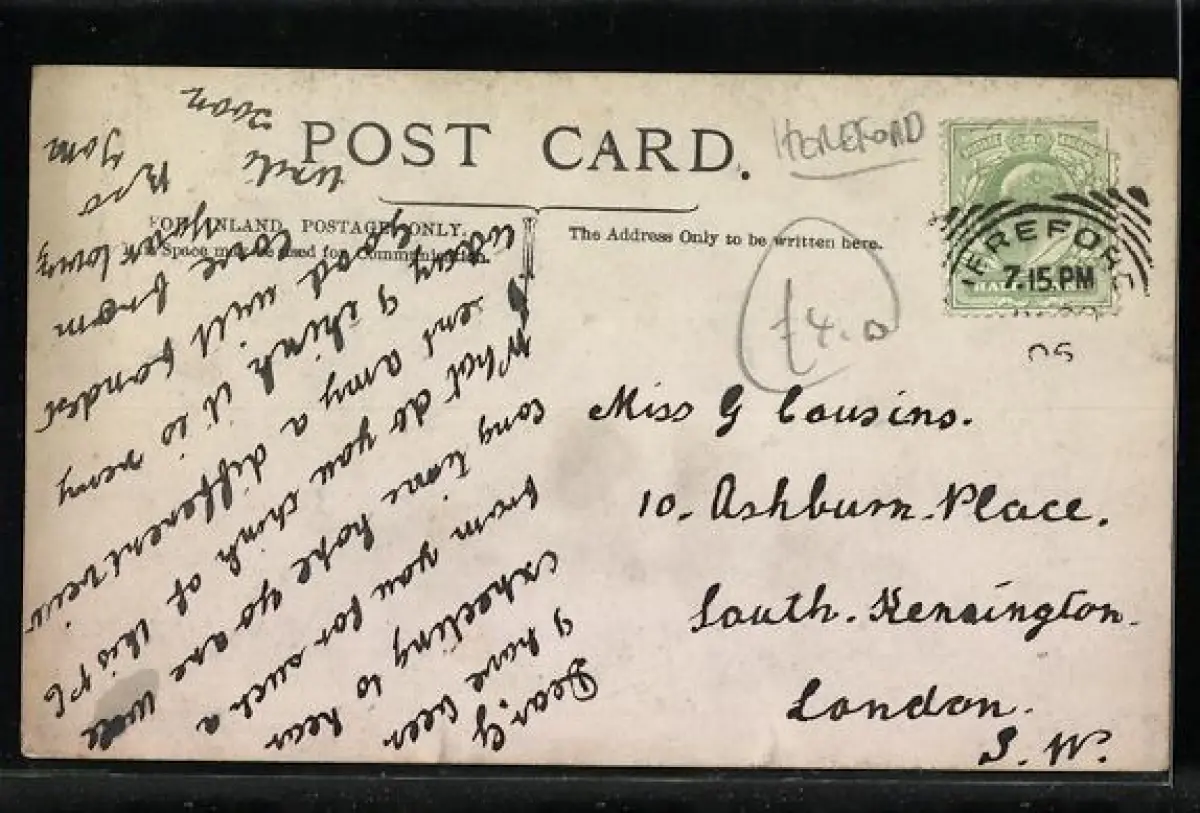 POST CARD.
HEREFORD
FOR INLAND POSTAGE ONLY.
Space may be used for Communication.
The Address Only to be written here.
HEREFORD
7.15.PM
05
HALF
£4.0
Miss G Cousins.
10. Ashburn. Place.
South. Kensington.
London.
S. W.
Dear. G
I have been
expecting to hear
from you for such a
long time hope yo are well
What do you think of this PC
sent amy a different veiw
I think it is very
good will
love fondest
from
Your loving
soon